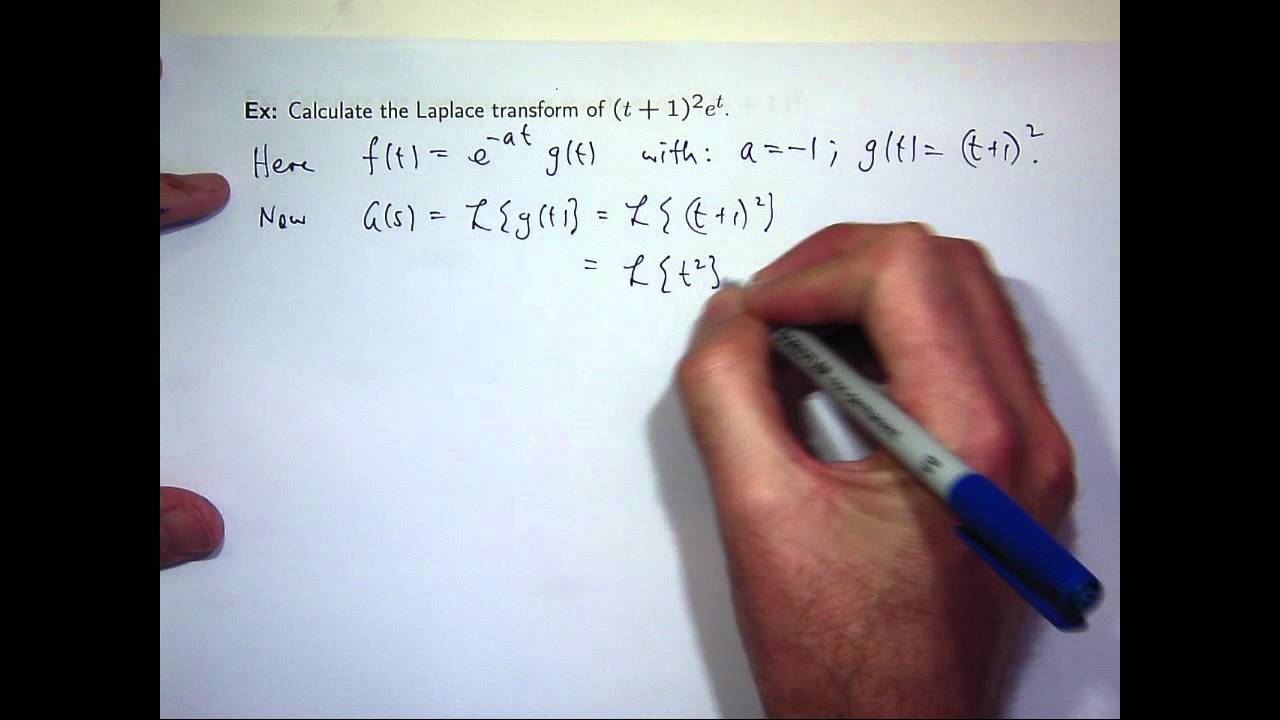 Ex: Calculate the Laplace transform of (t + 1)²eᵗ.
Here f(t) = e⁻ᵃᵗ g(t) with: a = -1; g(t) = (t+1)².
Now G(s) = ℒ{g(t)} = ℒ{(t+1)²}
= ℒ{t²}